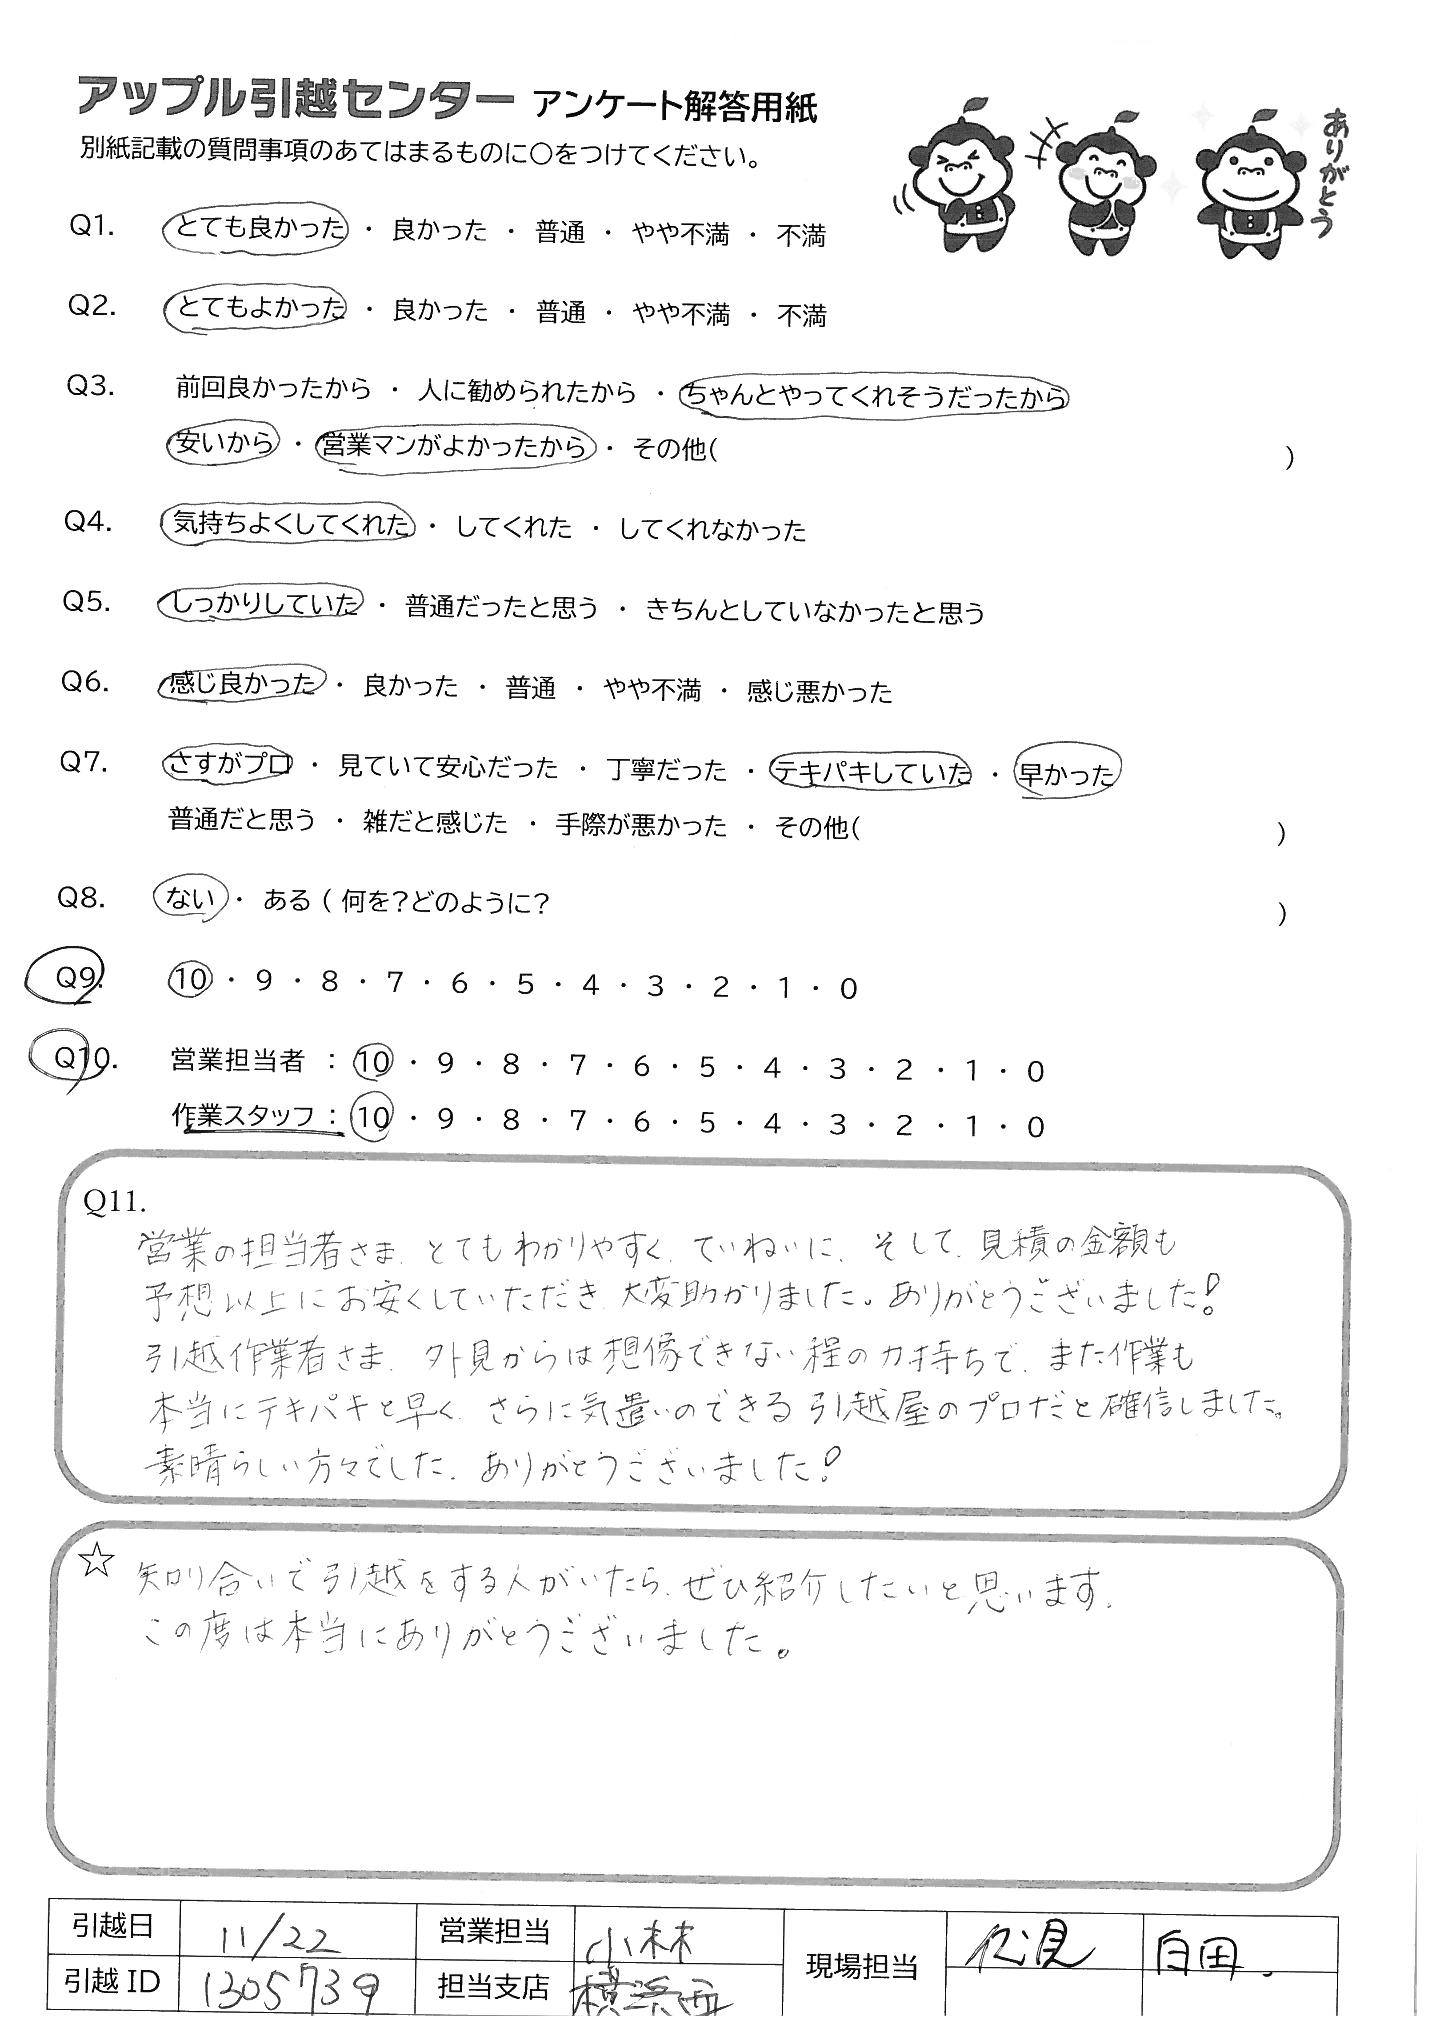 アップル引越センター アンケート解答用紙
別紙記載の質問事項のあてはまるものに〇をつけてください。
ありがとう
Q1. とても良かった ・ 良かった ・ 普通 ・ やや不満 ・ 不満
Q2. とてもよかった ・ 良かった ・ 普通 ・ やや不満 ・ 不満
Q3. 前回良かったから ・ 人に勧められたから ・ ちゃんとやってくれそうだったから
安いから ・ 営業マンがよかったから ・ その他( )
Q4. 気持ちよくしてくれた ・ してくれた ・ してくれなかった
Q5. しっかりしていた ・ 普通だったと思う ・ きちんとしていなかったと思う
Q6. 感じ良かった ・ 良かった ・ 普通 ・ やや不満 ・ 感じ悪かった
Q7. さすがプロ ・ 見ていて安心だった ・ 丁寧だった ・ テキパキしていた ・ 早かった
普通だと思う ・ 雑だと感じた ・ 手際が悪かった ・ その他( )
Q8. ない ・ ある ( 何を?どのように? )
Q9. 10 ・ 9 ・ 8 ・ 7 ・ 6 ・ 5 ・ 4 ・ 3 ・ 2 ・ 1 ・ 0
Q10. 営業担当者 : 10 ・ 9 ・ 8 ・ 7 ・ 6 ・ 5 ・ 4 ・ 3 ・ 2 ・ 1 ・ 0
作業スタッフ : 10 ・ 9 ・ 8 ・ 7 ・ 6 ・ 5 ・ 4 ・ 3 ・ 2 ・ 1 ・ 0
Q11.
営業の担当者さま、とてもわかりやすく、ていねいに、そして、見積の金額も
予想以上にお安くしていただき、大変助かりました。ありがとうございました!
引越作業者さま、外見からは想像できない程の力持ちで、また作業も
本当にテキパキと早く、さらに気遣いのできる引越屋のプロだと確信しました。
素晴らしい方々でした、ありがとうございました!
☆ 知り合いで引越をする人がいたら、ぜひ紹介したいと思います、
この度は本当にありがとうございました。
引越日 11/22 営業担当 小林 現場担当 伏見 白田.
引越 ID 1305739 担当支店 横浜西